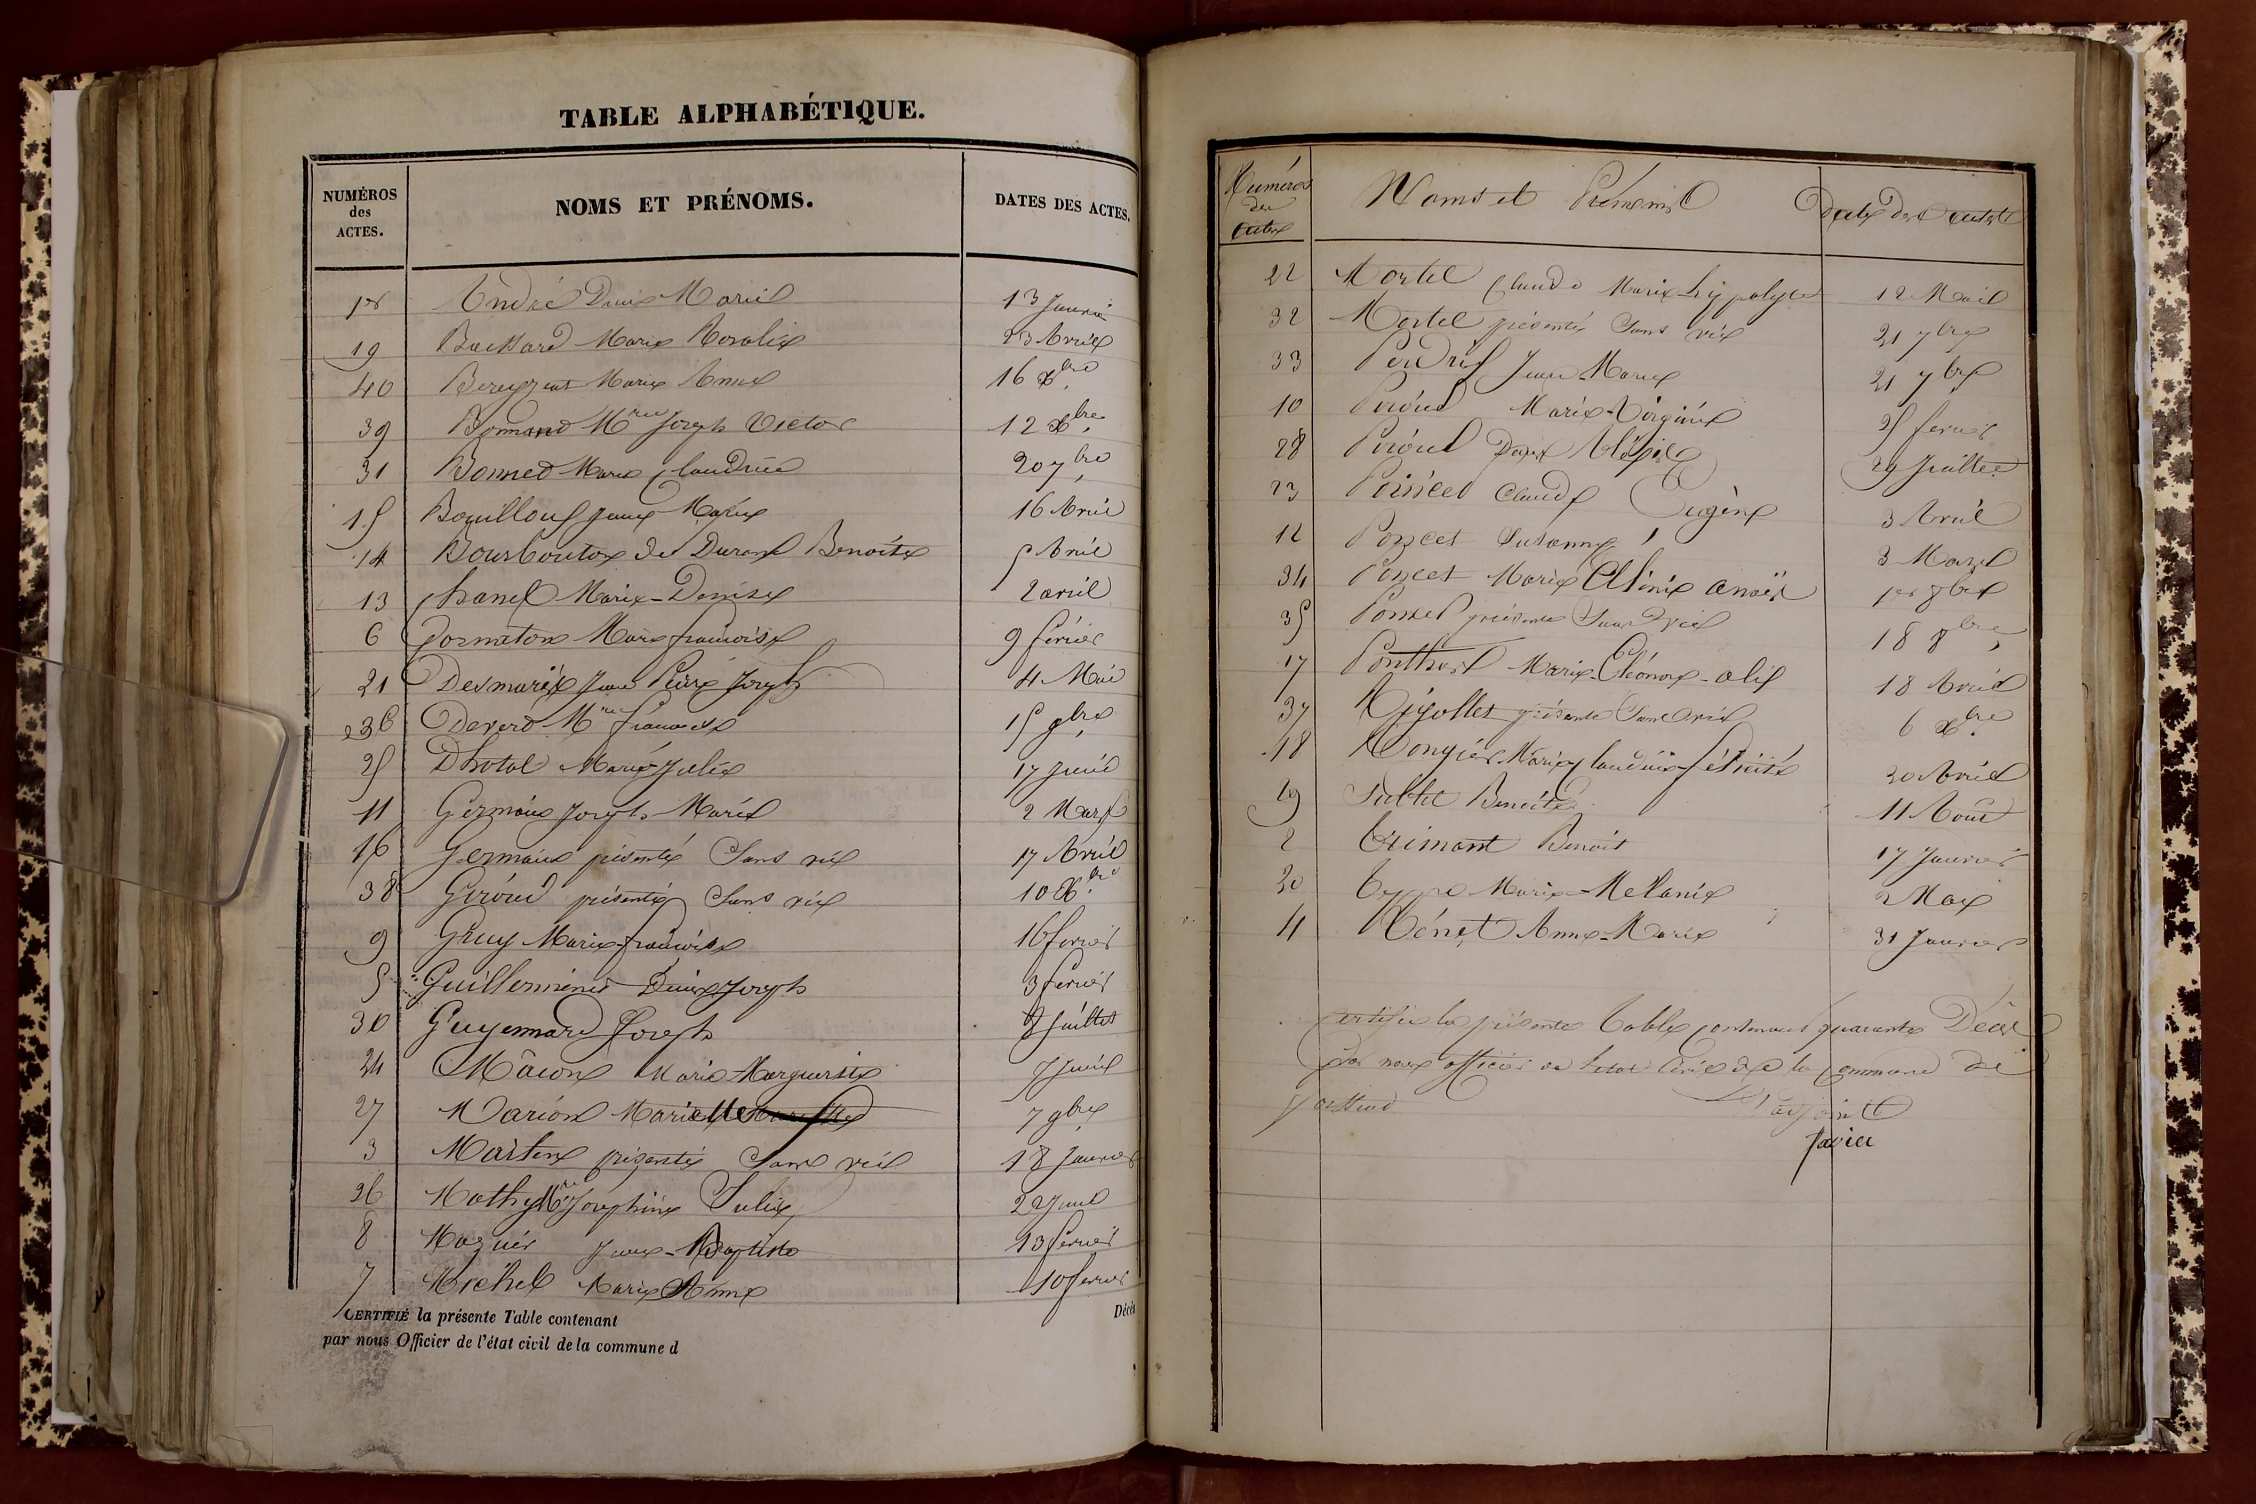 TABLE ALPHABÉTIQUE.
NUMÉROS des ACTES. NOMS ET PRÉNOMS. DATES DES ACTES.
1er André Marie 13 Janvier
19 Marie Rosalie 23 Avril
40 Marie Anne 16 Xbre
39 Mrie Joseph Victor 12 Xbre
31 Bonnet Marie Claudine 20 7bre
15 Bouilloux Marie 16 Avril
14 de Durand Benoite 5 Avril
13 Chanel Marie-Denise 2 avril
6 Cormaton Marie françoise 9 février
21 Desmaris Jean Pierre Joseph 4 Mai
36 Mrie françoise 15 9bre
25 Dhotal Marie Julie 17 Juin
11 Germain Joseph Marie 2 Mars
16 Germain présenté Sans vie 17 Avril
38 Giroud présenté Sans vie 10 Xbre
9 Gruy Marie françoise 16 fevrier
5 Guillerminet Joseph 3 fevrier
30 Guyennard Joseph Juillet
24 Mâcon Marie-Marguerite 7 Juin
27 Marion Marie 7 9bre
3 présenté Sans vie 18 Janvier
26 Mathy Mrie Joséphine Julie 2 Juil
8 Maznier Jean-Baptiste 13 fevrier
7 Michel Marie Anne 10 fevrier
CERTIFIÉ la présente Table contenant Décès
par nous Officier de l'état civil de la commune d
Numéros des actes Noms et Prénoms Dates des actes
22 Mortel Claude Marie hypolyte 12 Mai
32 Mortel présenté Sans vie 21 7bre
33 Jean-Marie 21 7bre
10 Piroud Marie-Virginie 25 fevrier
28 Piroud 29 Juillet
23 Poncet Claude Eugène 3 Avril
12 Poncet Susanne 3 Mars
34 Poncet Marie anaïs 1er 8bre
35 Poncet présenté Sans vie 18 8bre
17 Ponthus Marie-Eléonore-alix 18 Avril
37 Rigollet présenté Sans vie 6 Xbre
18 Rongier Marie Claudine félicité 20 Avril
29 Sublet Benoite 11 Août
2 Trimont Benoit 17 Janvier
20 Marie-Melanie 2 Mai
4 Vénet Anne-Marie 31 Janvier
Certifié la présente Table contenant quarante Décès
par nous officier de l'etat Civil de la commune de
L'adjoint